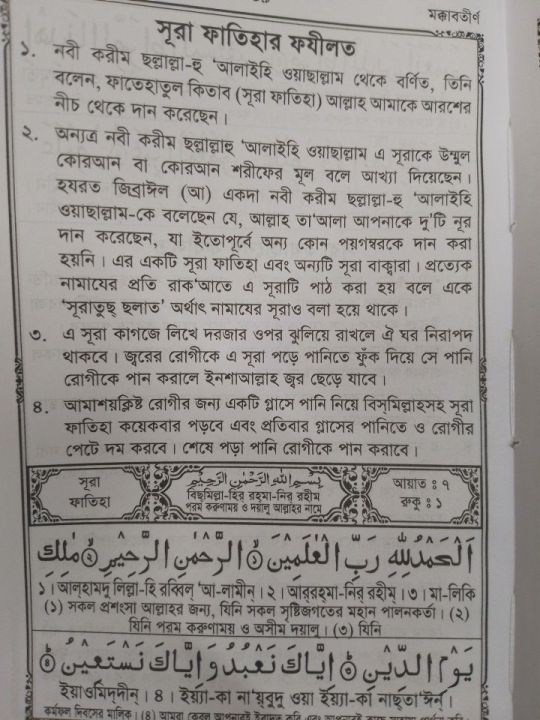 মক্কাবতীর্ণ
সূরা ফাতিহার ফযীলত
১. নবী করীম ছল্লাল্লা-হু ‘আলাইহি ওয়াছাল্লাম থেকে বর্ণিত, তিনি
বলেন, ফাতেহাতুল কিতাব (সূরা ফাতিহা) আল্লাহ আমাকে আরশের
নীচ থেকে দান করেছেন।
২. অন্যত্র নবী করীম ছল্লাল্লাহু ‘আলাইহি ওয়াছাল্লাম এ সূরাকে উম্মুল
কোরআন বা কোরআন শরীফের মূল বলে আখ্যা দিয়েছেন।
হযরত জিব্রাঈল (আ) একদা নবী করীম ছল্লাল্লা-হু ‘আলাইহি
ওয়াছাল্লাম-কে বলেছেন যে, আল্লাহ তা‘আলা আপনাকে দু’টি নূর
দান করেছেন, যা ইতোপূর্বে অন্য কোন পয়গম্বরকে দান করা
হয়নি। এর একটি সূরা ফাতিহা এবং অন্যটি সূরা বাক্বারা। প্রত্যেক
নামাযের প্রতি রাক‘আতে এ সূরাটি পাঠ করা হয় বলে একে
‘সূরাতুছ্ ছলাত’ অর্থাৎ নামাযের সূরাও বলা হয়ে থাকে।
৩. এ সূরা কাগজে লিখে দরজার ওপর ঝুলিয়ে রাখলে ঐ ঘর নিরাপদ
থাকবে। জ্বরের রোগীকে এ সূরা পড়ে পানিতে ফুঁক দিয়ে সে পানি
রোগীকে পান করালে ইনশাআল্লাহ জ্বর ছেড়ে যাবে।
৪. আমাশয়ক্লিষ্ট রোগীর জন্য একটি গ্লাসে পানি নিয়ে বিস্‌মিল্লাহসহ সূরা
ফাতিহা কয়েকবার পড়বে এবং প্রতিবার গ্লাসের পানিতে ও রোগীর
পেটে দম করবে। শেষে পড়া পানি রোগীকে পান করাবে।
সূরা
ফাতিহা
بِسْمِ اللّٰهِ الرَّحْمٰنِ الرَّحِيْمِ
বিছমিল্লা-হির রহমা-নির রহীম
পরম করুণাময় ও দয়ালু আল্লাহর নামে
আয়াত : ৭
রুকু : ১
اَلْحَمْدُ لِلّٰهِ رَبِّ الْعٰلَمِيْنَ ۝١ الرَّحْمٰنِ الرَّحِيْمِ ۝٢ مٰلِكِ
১। আল্‌হামদু লিল্লা-হি রব্বিল্ ‘আ-লামীন্। ২। আর্‌রহমা-নির্ রহীম্। ৩। মা-লিকি
(১) সকল প্রশংসা আল্লাহর জন্য, যিনি সকল সৃষ্টিজগতের মহান পালনকর্তা। (২)
যিনি পরম করুণাময় ও অসীম দয়ালু। (৩) যিনি
يَوْمِ الدِّيْنِ ۝٣ اِيَّاكَ نَعْبُدُ وَاِيَّاكَ نَسْتَعِيْنُ ۝٤
ইয়াওমিদ্দীন্। ৪। ইয়্যা-কা না‘য়্বুদু ওয়া ইয়্যা-কা নাছ্‌তা‘ঈন্।
কর্মফল দিবসের মালিক। (৪) আমরা কেবল আপনারই ইবাদত করি এবং